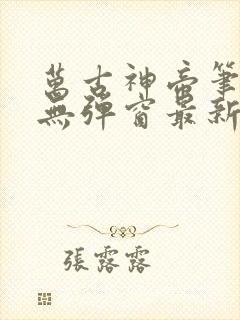 萬古神帝筆
無彈窗最新
張露露